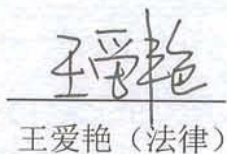 王爱艳
王爱艳（法律）